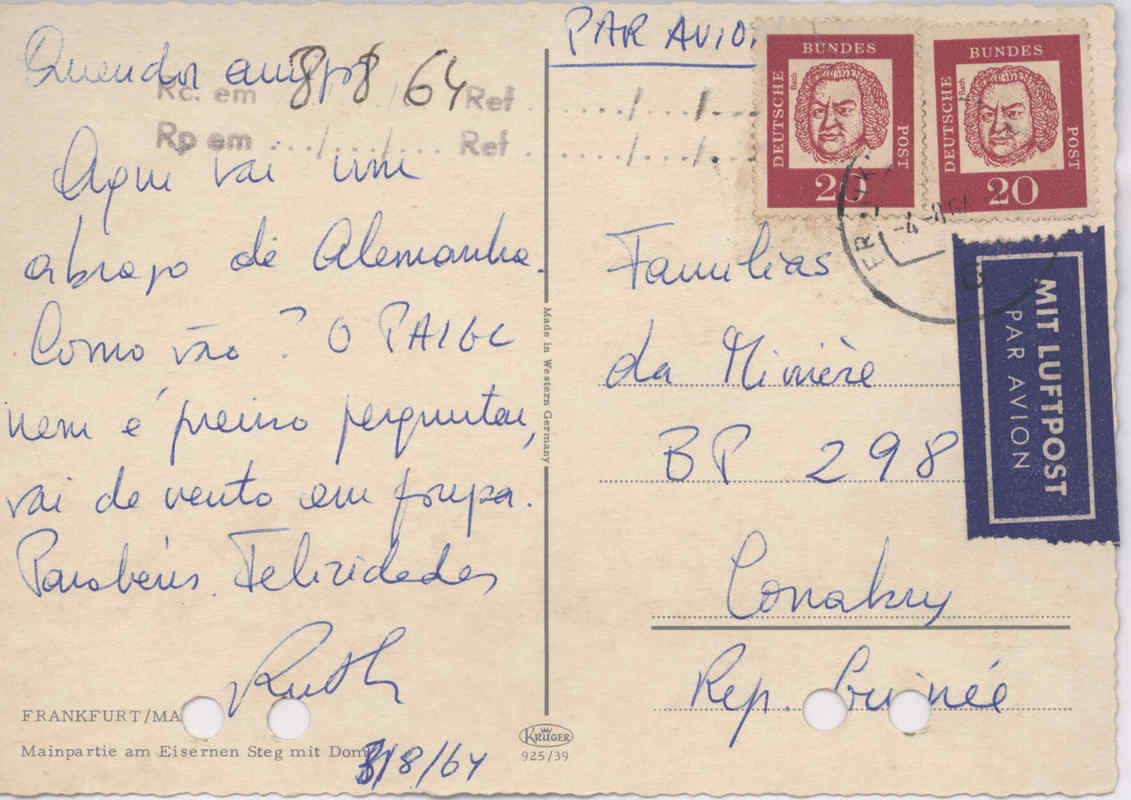 Queridos amigos
Rc. em 8/8/64 Ref ....../...../.....
Rp em .../....../...... Ref ....../...../.....
Aqui vai um
abraço da Alemanha.
Como vão? O PAIGC
nem é preciso perguntar,
vai de vento em popa.
Parabéns. Felicidades
Ruth
FRANKFURT/MA
Mainpartie am Eisernen Steg mit Dom
3/8/64
Made in Western Germany
KRÜGER
925/39
PAR AVION
DEUTSCHE BUNDES POST
Bach
20
DEUTSCHE BUNDES POST
Bach
20
-4.-8.64
MIT LUFTPOST
PAR AVION
Familias
da Minière
BP 298
Conakry
Rep. Guinée